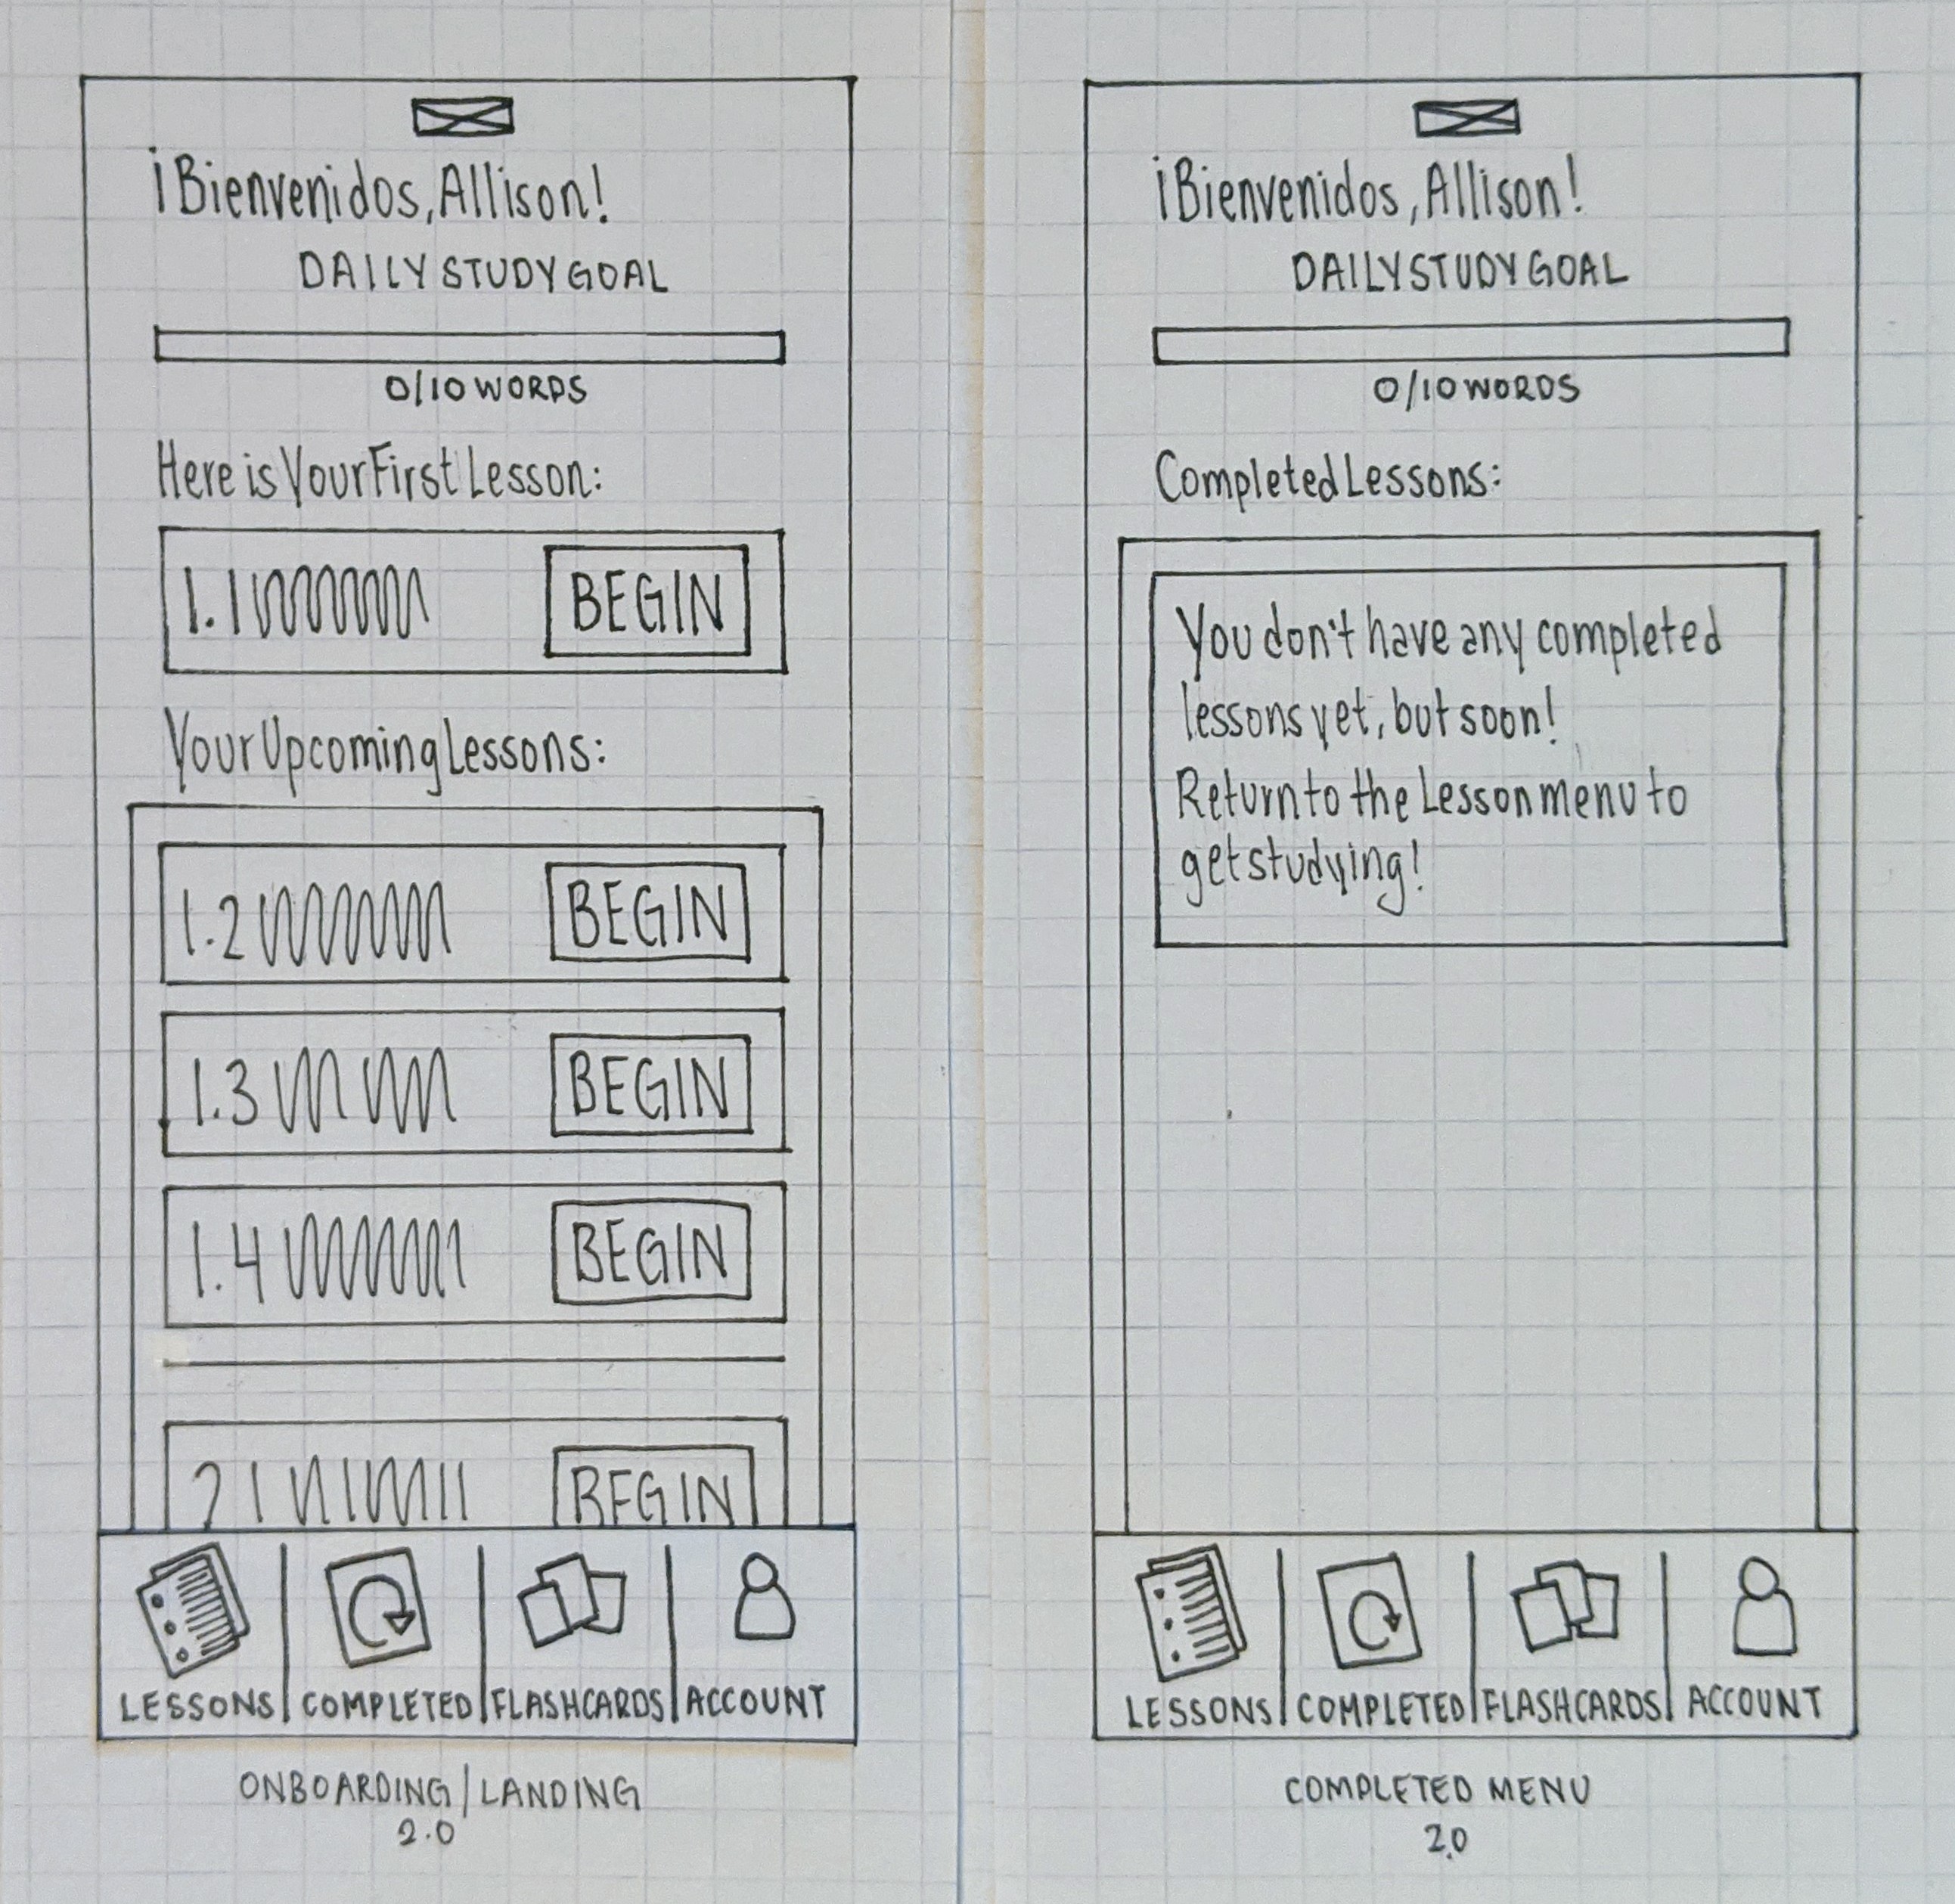 ¡Bienvenidos, Allison!
DAILY STUDY GOAL
0/10 WORDS
Here is Your First Lesson:
1.1 BEGIN
Your Upcoming Lessons:
1.2 BEGIN
1.3 BEGIN
1.4 BEGIN
2.1 BEGIN
LESSONS COMPLETED FLASHCARDS ACCOUNT
ONBOARDING/LANDING
2.0
¡Bienvenidos, Allison!
DAILY STUDY GOAL
0/10 WORDS
Completed Lessons:
You don't have any completed
lessons yet, but soon!
Return to the Lesson menu to
get studying!
LESSONS COMPLETED FLASHCARDS ACCOUNT
COMPLETED MENU
2.0